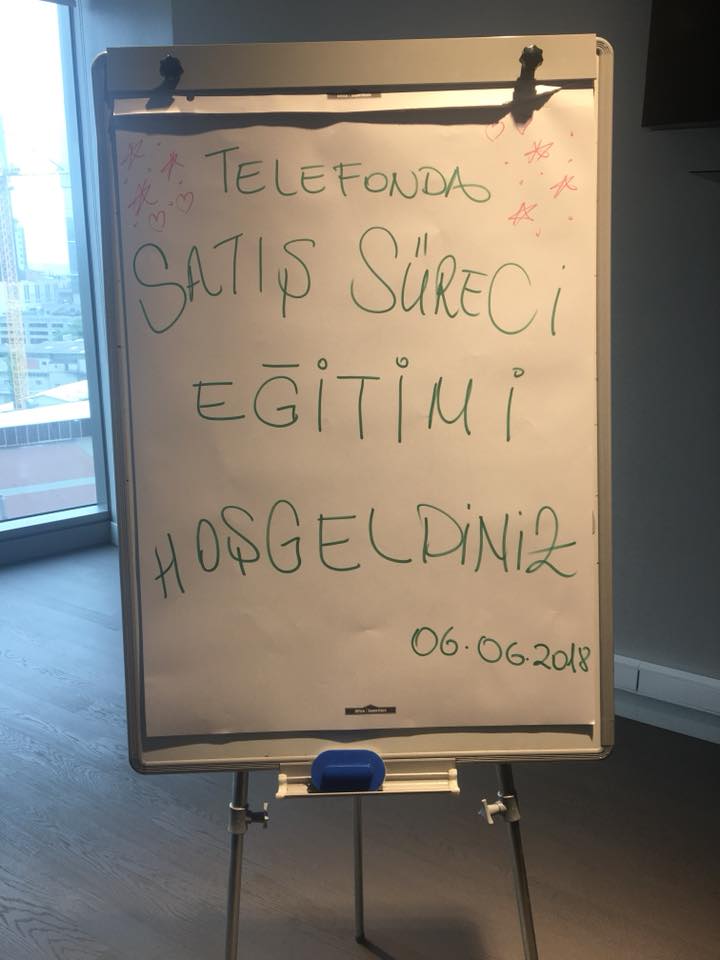 TELEFONDA
SATIŞ SÜRECİ
EĞİTİMİ
HOŞGELDİNİZ
06.06.2018